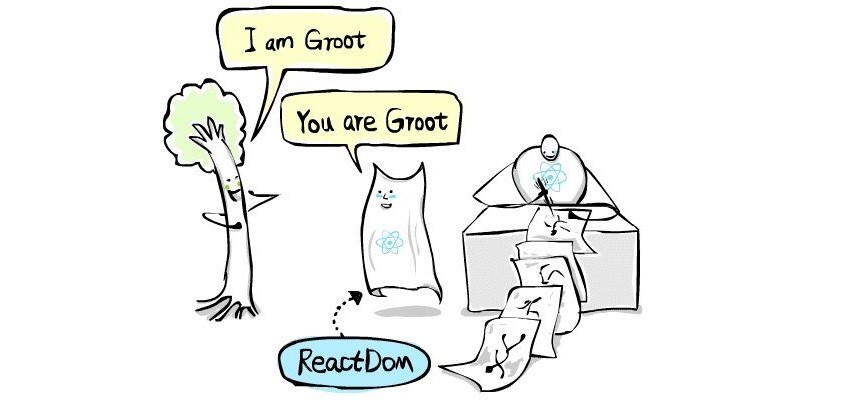 I am Groot
You are Groot
ReactDom